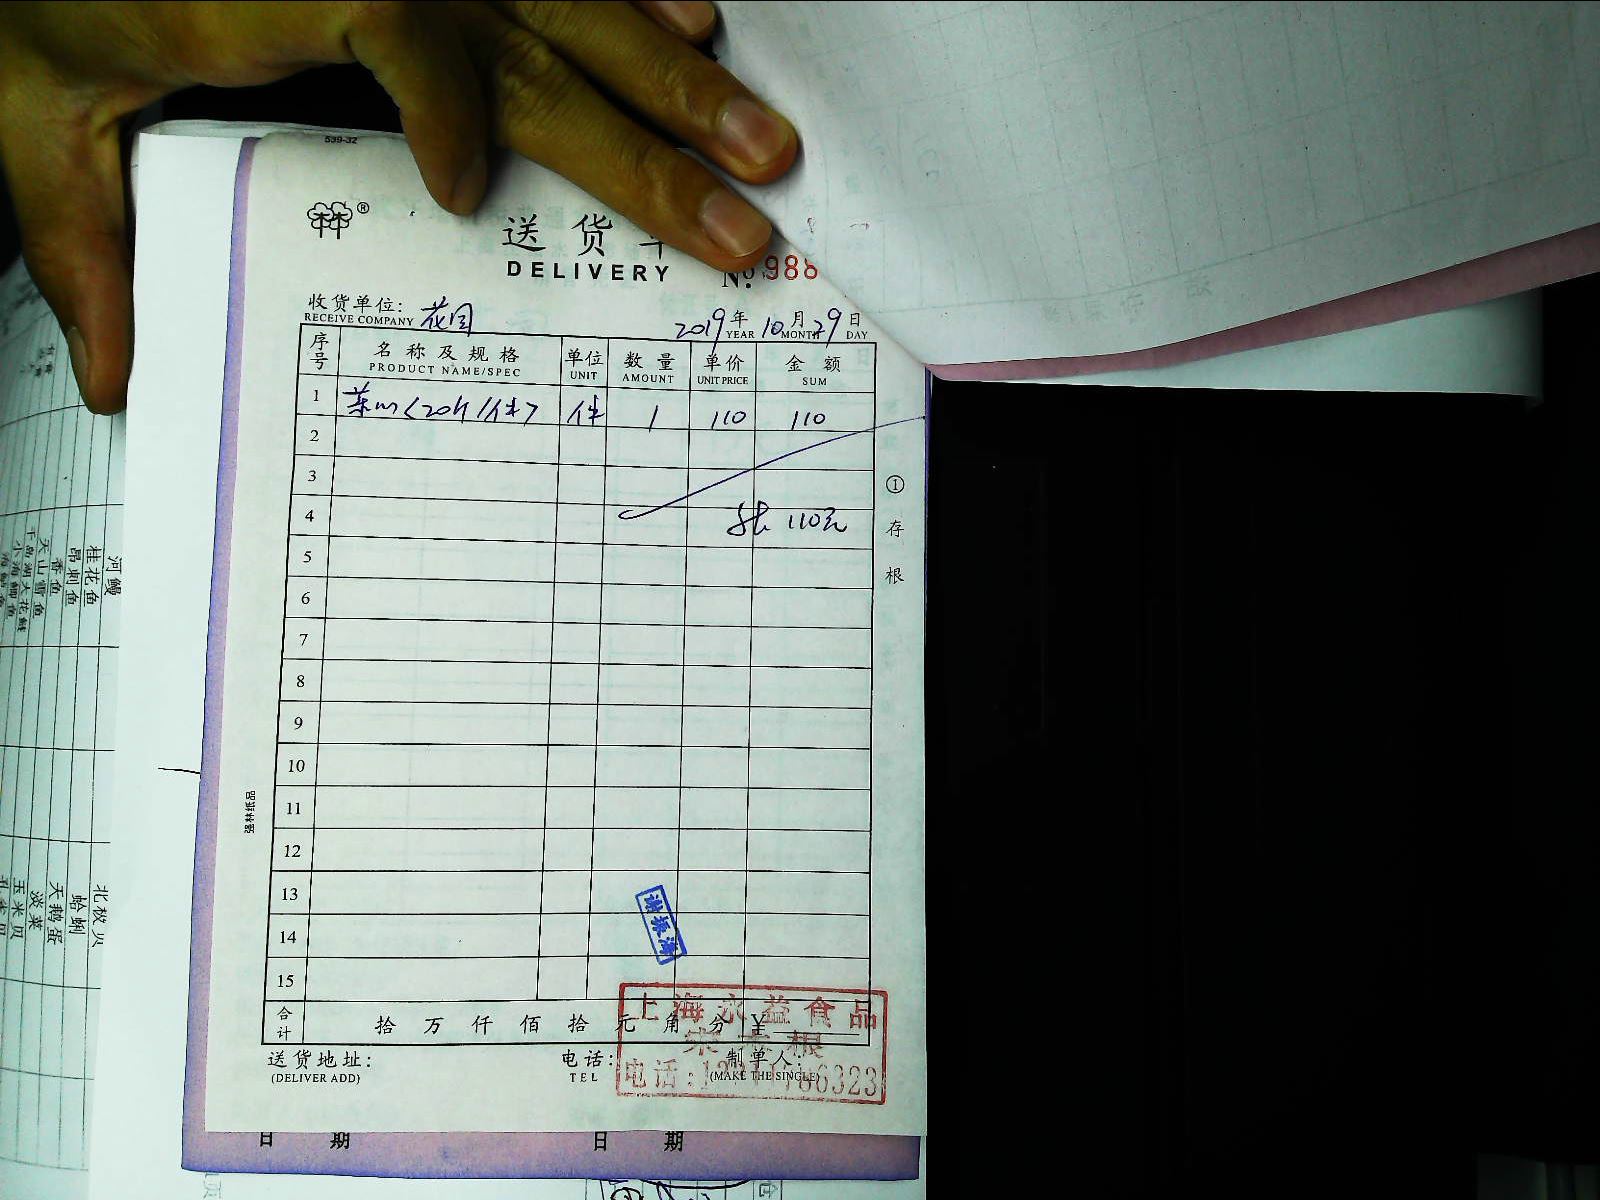 539-32
®
送货单
DELIVERY
No. 988
收货单位: 花园
RECEIVE COMPANY
2019年10月29日
YEAR MONTH DAY
序号 名称及规格 单位 数量 单价 金额
PRODUCT NAME/SPEC UNIT AMOUNT UNIT PRICE SUM
1 件 1 110 110
2
3
4 110元
5
6
7
8
9
10
11
12
13
14
15
合计 拾 万 仟 佰 拾 元 角 分 ¥
送货地址: 电话: 制单人:
(DELIVER ADD) TEL (MAKE THE SINGLE)
①存根
强林纸品
谢振海
上海永益食品
电话:
日 期 日 期
河鳗
桂花鱼
昂刺鱼
香鱼
北极贝
蛤蜊
天鹅蛋
淡菜
玉米贝